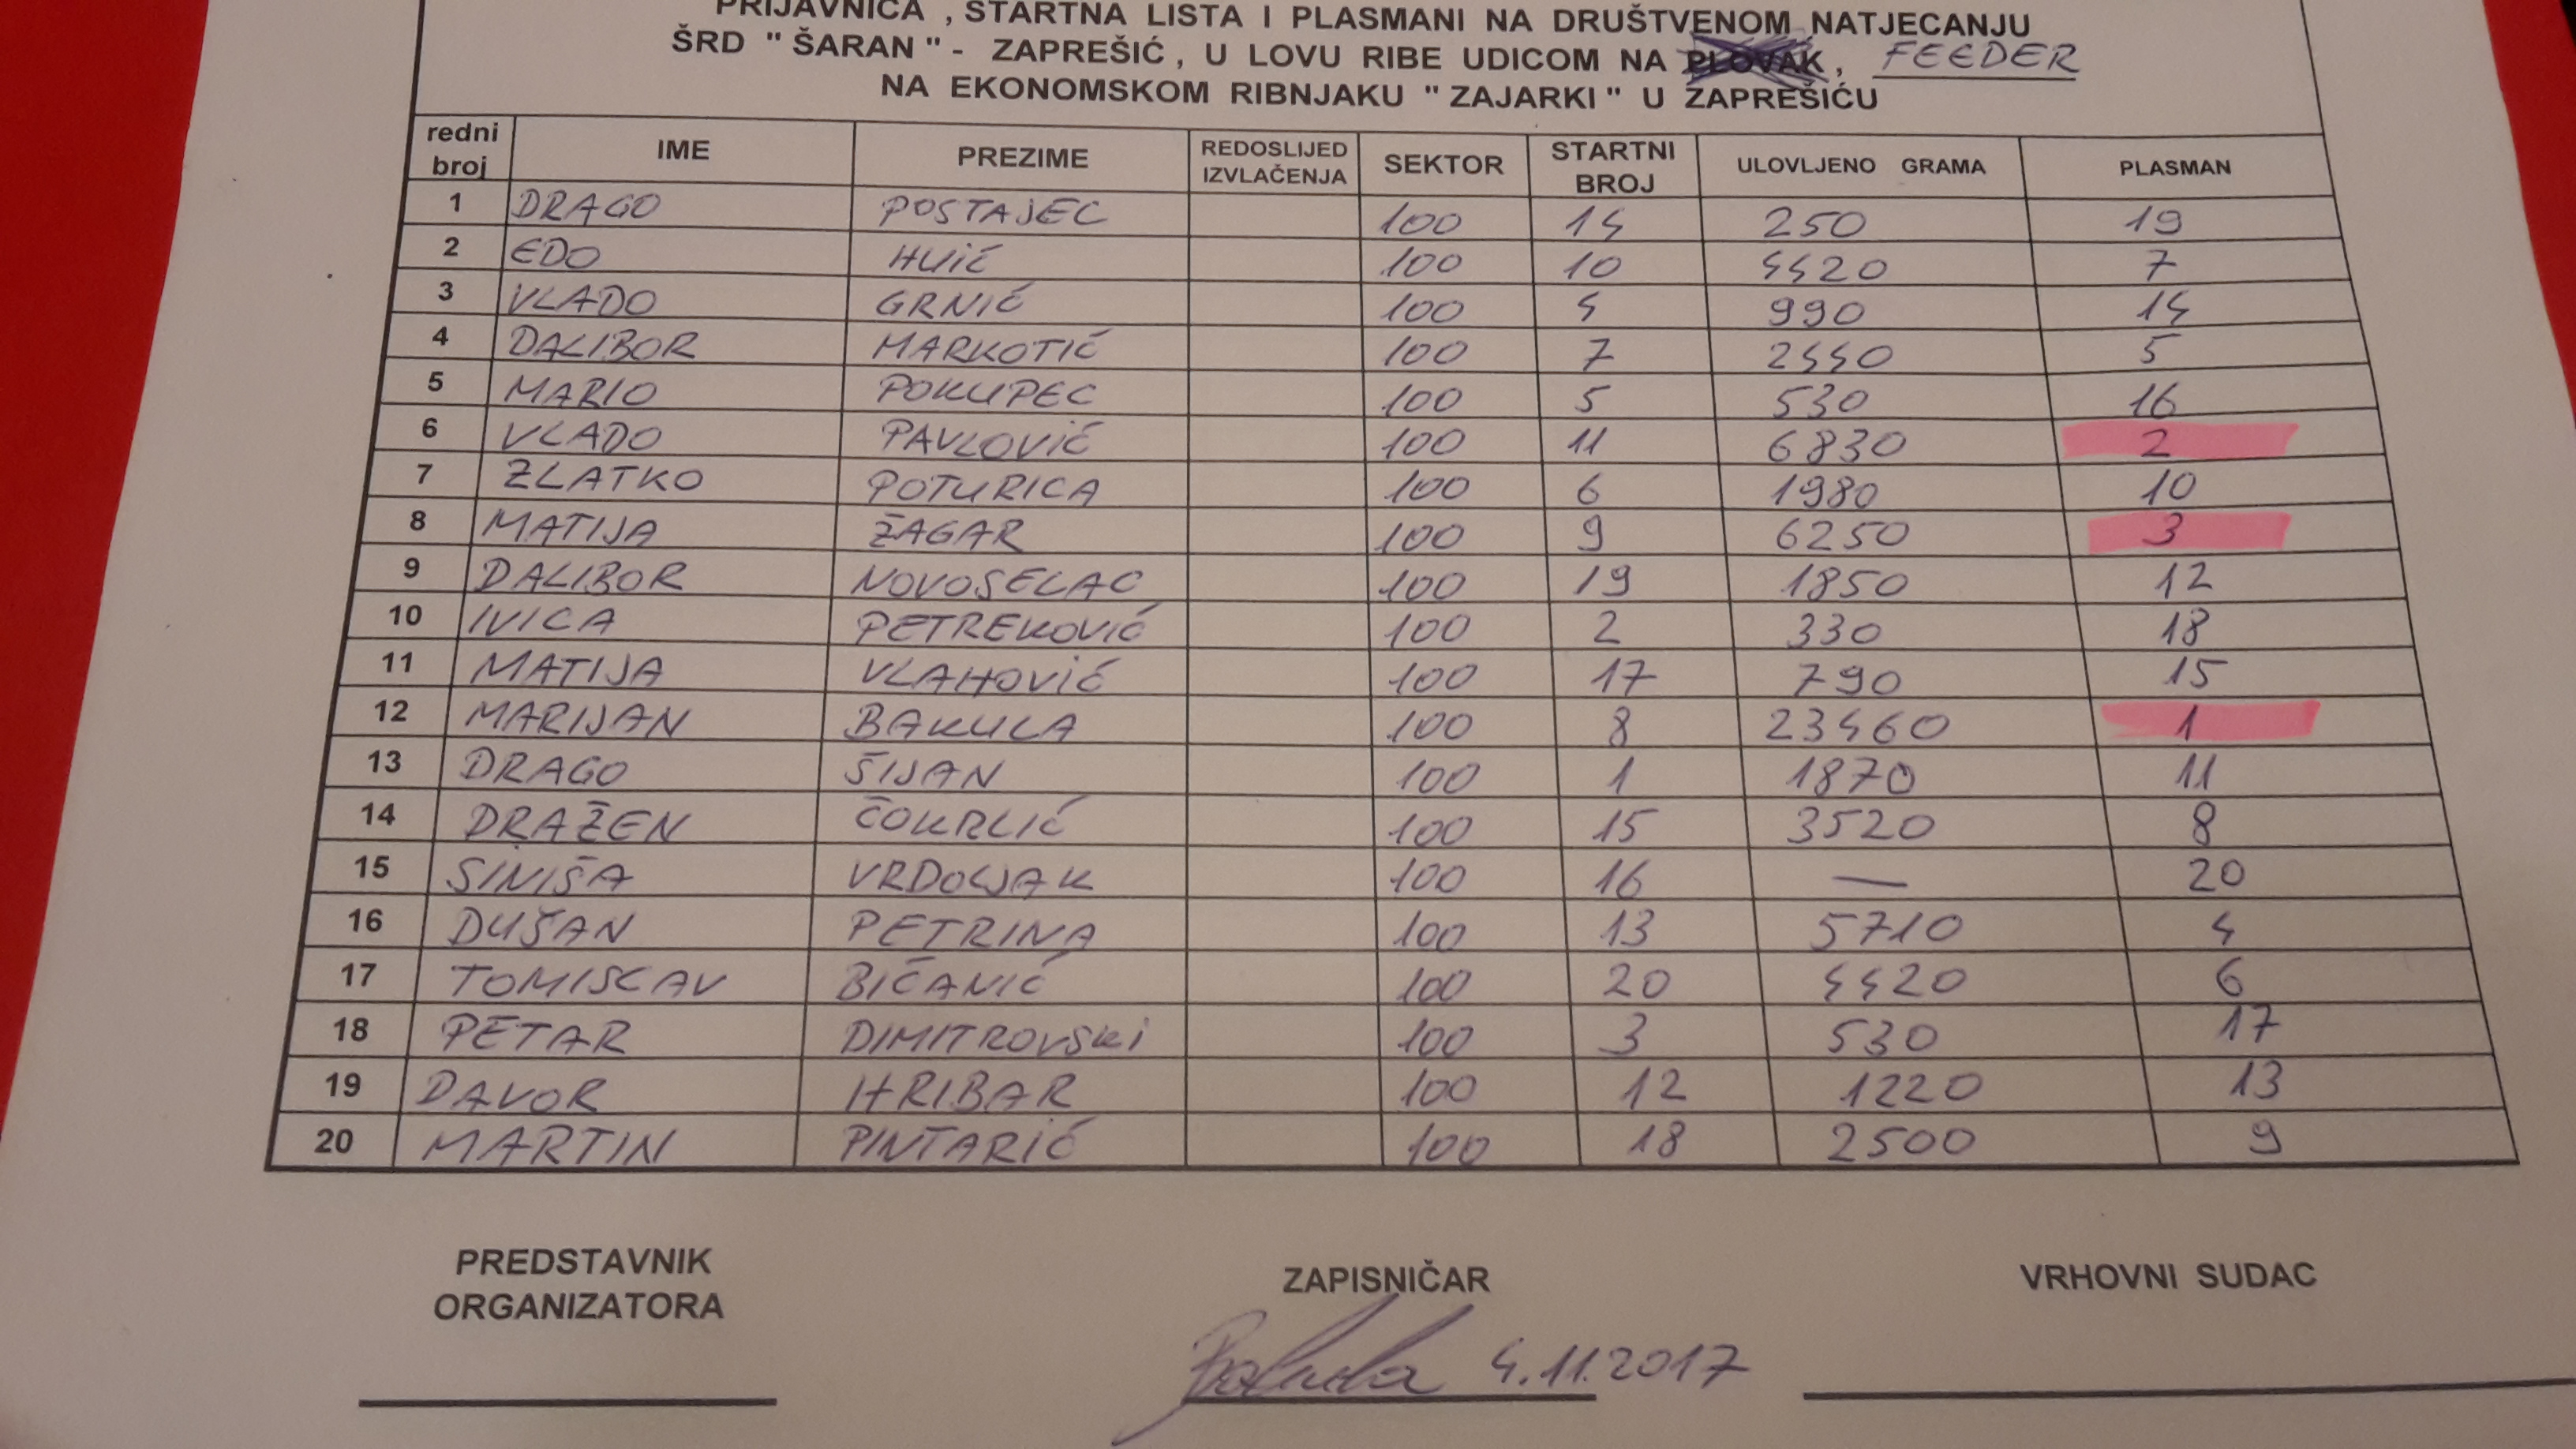 PRIJAVNICA , STARTNA LISTA I PLASMANI NA DRUŠTVENOM NATJECANJU
ŠRD " ŠARAN " - ZAPREŠIĆ , U LOVU RIBE UDICOM NA PLOVAK , FEEDER
NA EKONOMSKOM RIBNJAKU " ZAJARKI " U ZAPREŠIĆU
redni broj IME PREZIME REDOSLIJED IZVLAČENJA SEKTOR STARTNI BROJ ULOVLJENO GRAMA PLASMAN
1 DRAGO POSTAJEC 100 14 250 19
2 EDO HUIĆ 100 10 4420 7
3 VLADO GRNIĆ 100 4 990 14
4 DALIBOR MARKOTIĆ 100 7 2440 5
5 MARIO POKUPEC 100 5 530 16
6 VLADO PAVLOVIĆ 100 11 6830 2
7 ZLATKO POTURICA 100 6 1980 10
8 MATIJA ŽAGAR 100 9 6250 3
9 DALIBOR NOVOSELAC 100 19 1850 12
10 IVICA PETREKOVIĆ 100 2 330 18
11 MATIJA VLAHOVIĆ 100 17 790 15
12 MARIJAN BAKULA 100 8 23460 1
13 DRAGO ŠIJAN 100 1 1870 11
14 DRAŽEN ČOKRLIĆ 100 15 3520 8
15 SINIŠA VRDOLJAK 100 16 — 20
16 DUŠAN PETRINA 100 13 5710 4
17 TOMISLAV BIČANIĆ 100 20 4420 6
18 PETAR DIMITROVSKI 100 3 530 17
19 DAVOR HRIBAR 100 12 1220 13
20 MARTIN PINTARIĆ 100 18 2500 9
PREDSTAVNIK ORGANIZATORA
ZAPISNIČAR
VRHOVNI SUDAC
Bakula 4.11.2017